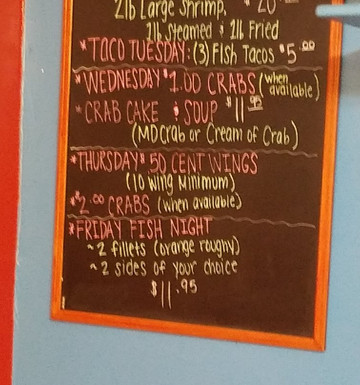 2lb Large Shrimp, $20
1lb Steamed & 1lb Fried
*TACO TUESDAY: (3) Fish Tacos $5.00
*WEDNESDAY $1.00 CRABS (when available)
*CRAB CAKE & SOUP $11.95
(MD Crab or Cream of Crab)
*THURSDAY $.50 CENT WINGS
(10 Wing Minimum)
*$2.00 CRABS (when available)
*FRIDAY FISH NIGHT
~2 fillets (orange roughy)
~2 sides of your choice
$11.95